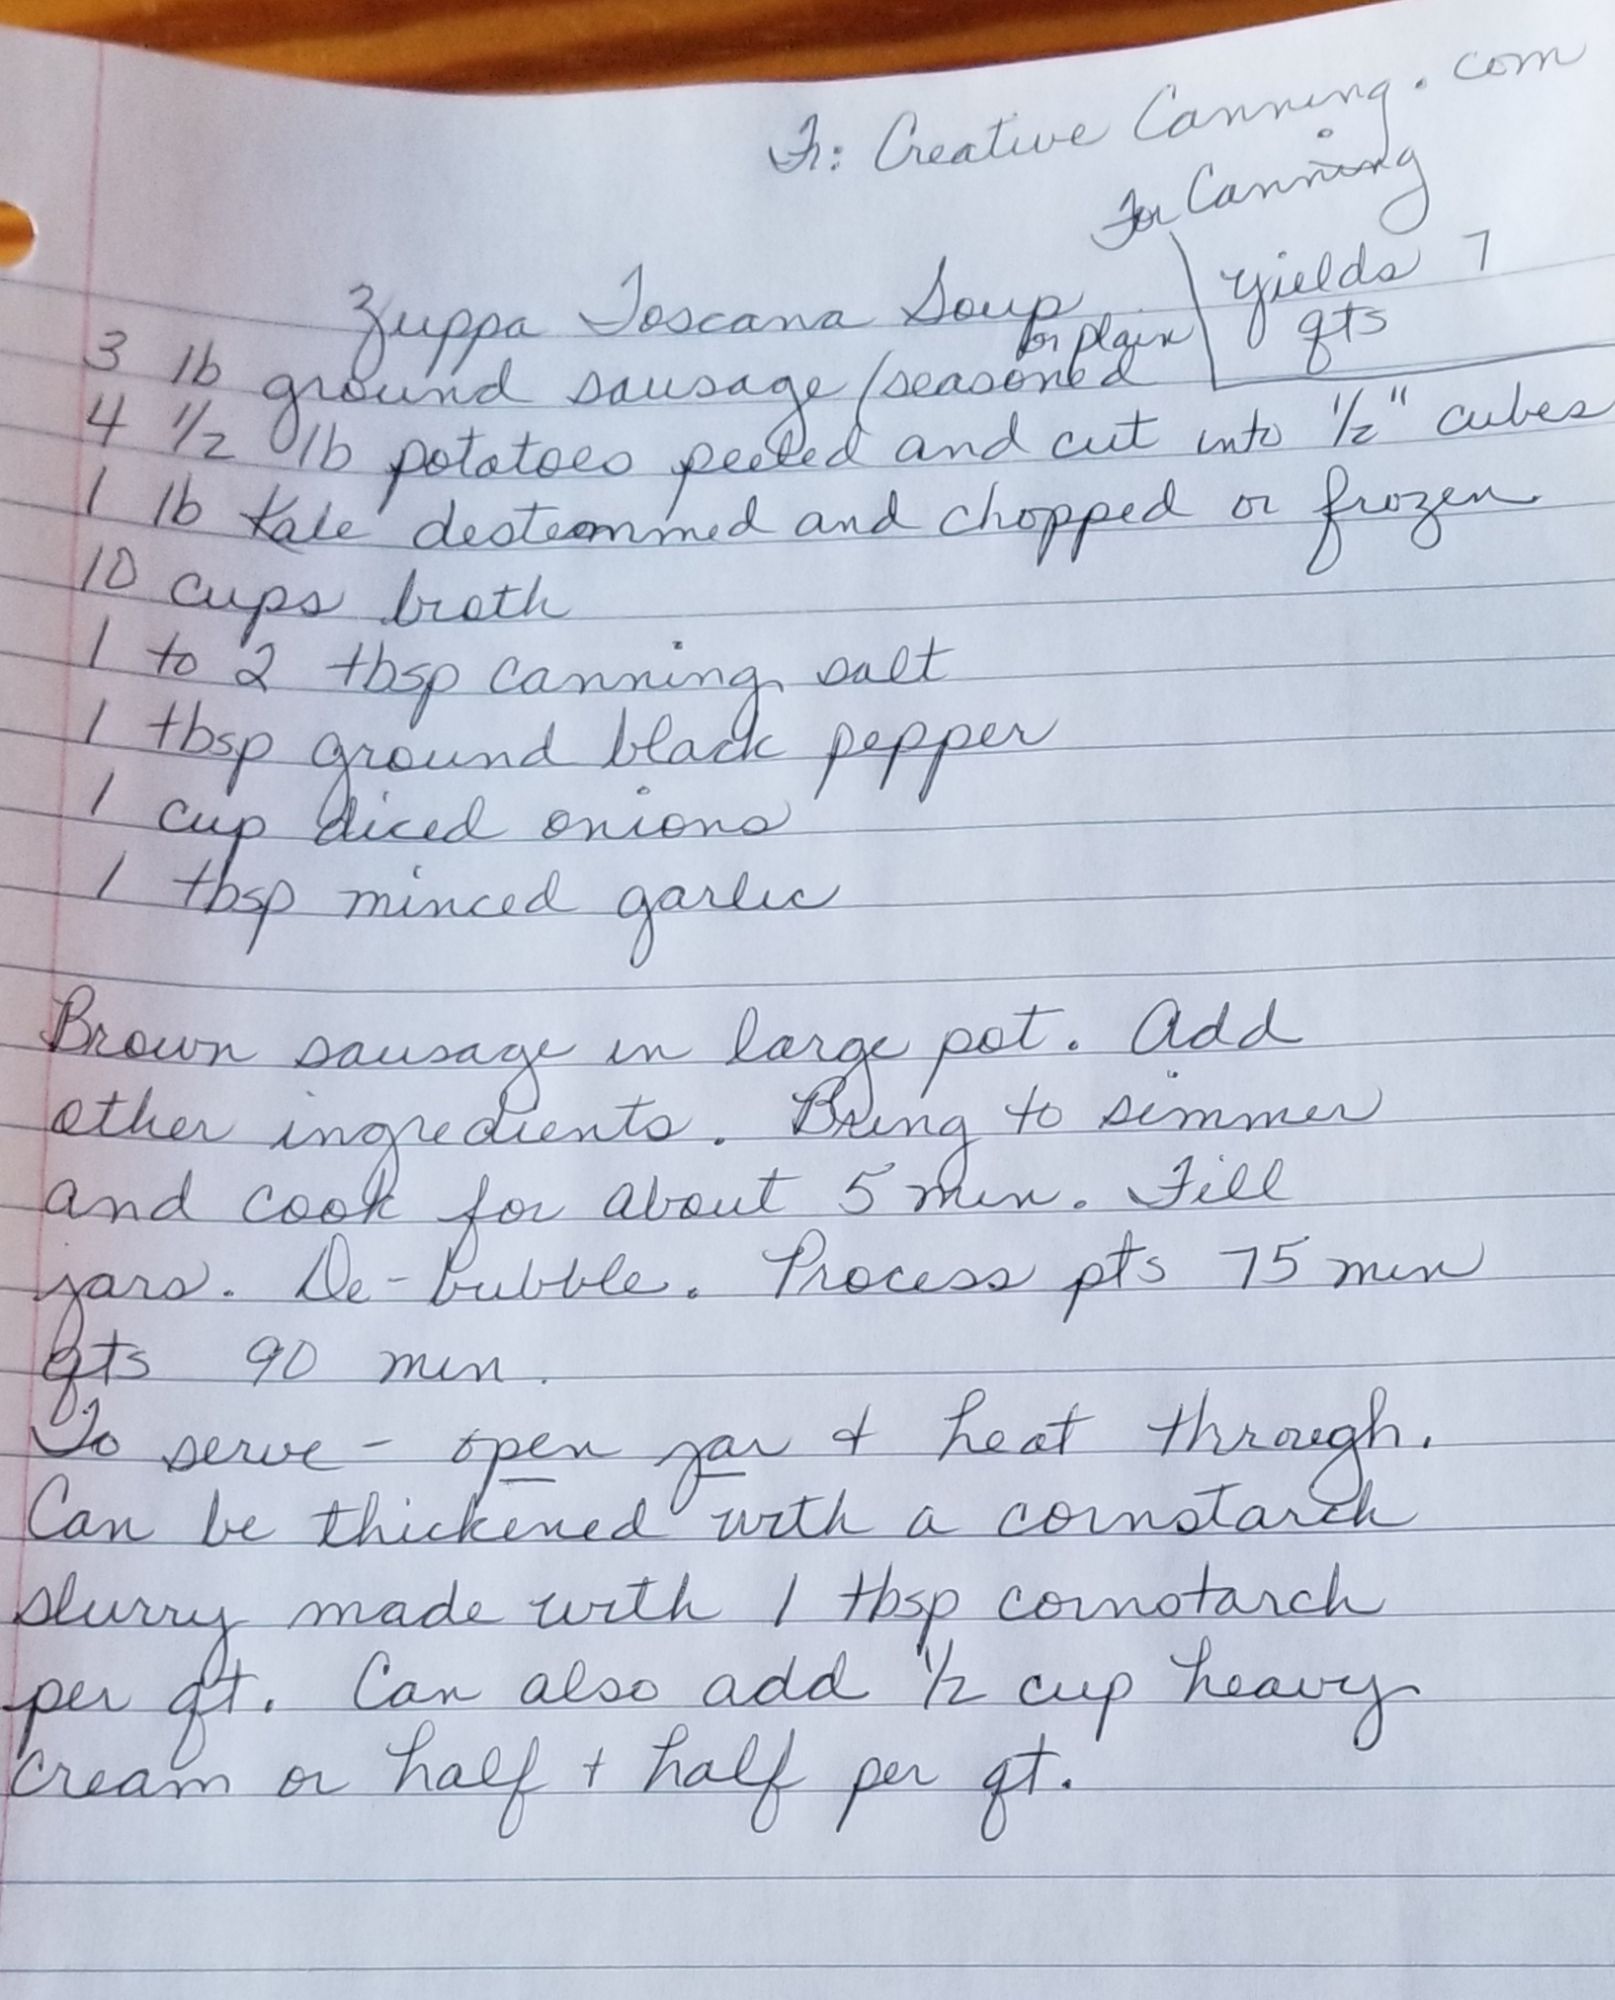 Fr: Creative Canning.com
For Canning
Yields 7
qts
Zuppa Toscana Soup
or plain
3 lb ground sausage/seasoned
4 1/2 lb potatoes peeled and cut into 1/2" cubes
1 lb Kale destemmed and chopped or frozen
10 cups broth
1 to 2 tbsp canning salt
1 tbsp ground black pepper
1 cup diced onions
1 tbsp minced garlic
Brown sausage in large pot. Add
other ingredients. Bring to simmer
and cook for about 5 min. Fill
jars. De-bubble. Process pts 75 min
qts 90 min.
To serve - open jar & heat through.
Can be thickened with a cornstarch
slurry made with 1 tbsp cornstarch
per qt. Can also add 1/2 cup heavy
cream or half + half per qt.